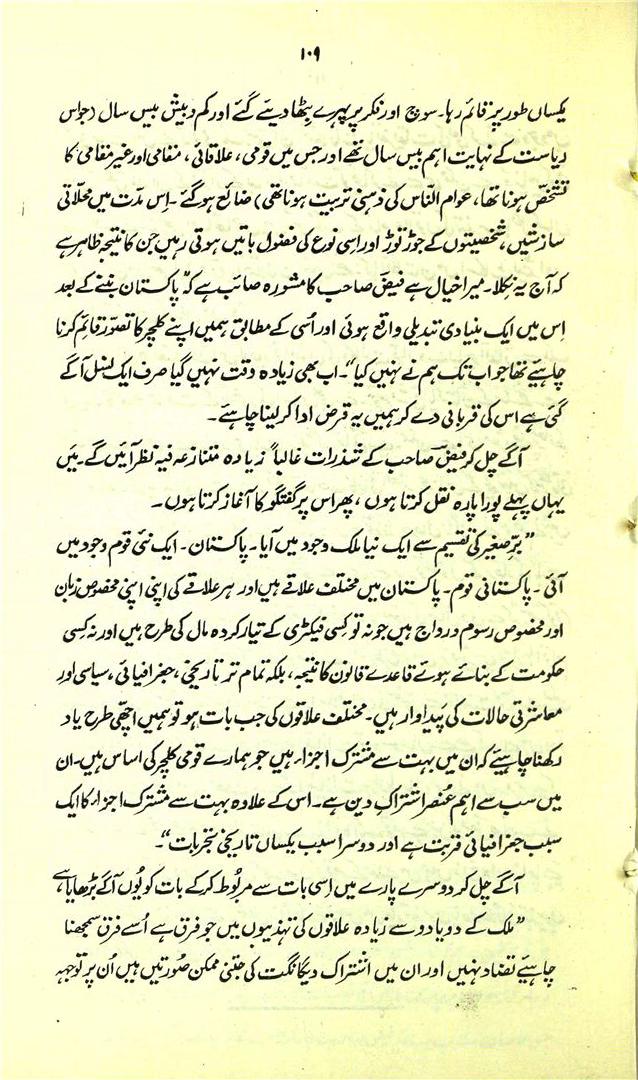 ۱۰۹
یکساں طور پر قائم رہا۔ سوچ اور فکر پر پہرے بٹھا دیئے گئے اور کم و بیش بیس سال (جو اس
ریاست کے نہایت اہم بیس سال تھے اور جس میں قومی، علاقائی، مقامی اور غیر مقامی کا
تشخص ہونا تھا، عوام النّاس کی ذہنی تربیت ہونا تھی) ضائع ہو گئے۔ اِس مدّت میں محلّاتی
سازشیں، شخصیتوں کے جوڑ توڑ اور اسی نوع کی فضول باتیں ہوتی رہیں جن کا نتیجہ ظاہر ہے
کہ آج یہ نکلا۔ میرا خیال ہے فیضؔ صاحب کا مشورہ صائب ہے کہ ”پاکستان بننے کے بعد
اِس میں ایک بنیادی تبدیلی واقع ہوئی اور اُسی کے مطابق ہمیں اپنے کلچر کا تصوّر قائم کرنا
چاہیئے تھا جو اب تک ہم نے نہیں کیا“۔ اب بھی زیادہ وقت نہیں گیا صرف ایک نسل آگے
گئی ہے اس کی قربانی دے کر ہمیں یہ قرض ادا کر لینا چاہیئے۔
آگے چل کر فیضؔ صاحب کے شذرات غالباً زیادہ متنازعہ فیہ نظر آئیں گے۔ میں
یہاں پہلے پورا پارہ نقل کرتا ہوں، پھر اس پر گفتگو کا آغاز کرتا ہوں۔
”برِّصغیر کی تقسیم سے ایک نیا ملک وجود میں آیا۔ پاکستان۔ ایک نئی قوم وجود میں
آئی۔ پاکستانی قوم۔ پاکستان میں مختلف علاقے ہیں اور ہر علاقے کی اپنی اپنی مخصوص زبان
اور مخصوص رسوم و رواج ہیں جو نہ تو کسی فیکٹری کے تیار کردہ مال کی طرح ہیں اور نہ کسی
حکومت کے بنائے ہوئے قاعدے قانون کا نتیجہ، بلکہ تمام تر تاریخی، جغرافیائی، سیاسی اور
معاشرتی حالات کی پیداوار ہیں۔ مختلف علاقوں کی جب بات ہو تو ہمیں اچھّی طرح یاد
رکھنا چاہیئے کہ ان میں بہت سے مشترک اجزاء ہیں جو ہمارے قومی کلچر کی اساس ہیں۔ ان
میں سب سے اہم عُنصر اشتراکِ دین ہے۔ اس کے علاوہ بہت سے مشترک اجزاء کا ایک
سبب جغرافیائی قربت ہے اور دوسرا سبب یکساں تاریخی تجربات“۔
آگے چل کر دوسرے پارے میں اِسی بات سے مربُوط کر کے بات کو یُوں آگے بڑھایا ہے،
”ملک کے دو یا دو سے زیادہ علاقوں کی تہذیبوں میں جو فرق ہے اُسے فرق سمجھنا
چاہیئے تضاد نہیں اور ان میں اشتراک و یگانگت کی جتنی ممکن صُورتیں ہیں اُن پر توجہہ